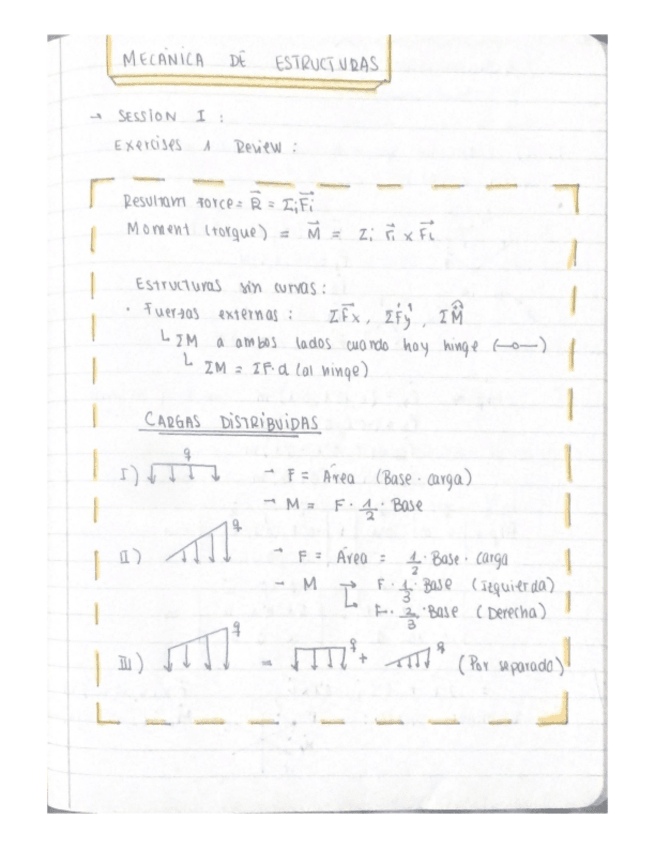 MECÁNICA DE ESTRUCTURAS
→ SESSION I :
Exercises 1 Review :
Resultant force = R⃗ = Σi F⃗i
Moment (torque) = M⃗ = Σi r⃗i x F⃗i
Estructuras sin curvas :
· Fuerzas externas : ΣF⃗x , ΣFy , ΣM
↳ ΣM a ambos lados cuando hay hinge (—o—)
↳ ΣM = ΣF·d (al hinge)
CARGAS DISTRIBUIDAS
q
I) → F = Área (Base · carga)
→ M = F · 1/2 · Base
q
II) → F = Área = 1/2 · Base · carga
→ M → F · 1/3 · Base (Izquierda)
↳ F · 2/3 · Base (Derecha)
q q q
III) = + (Por separado)